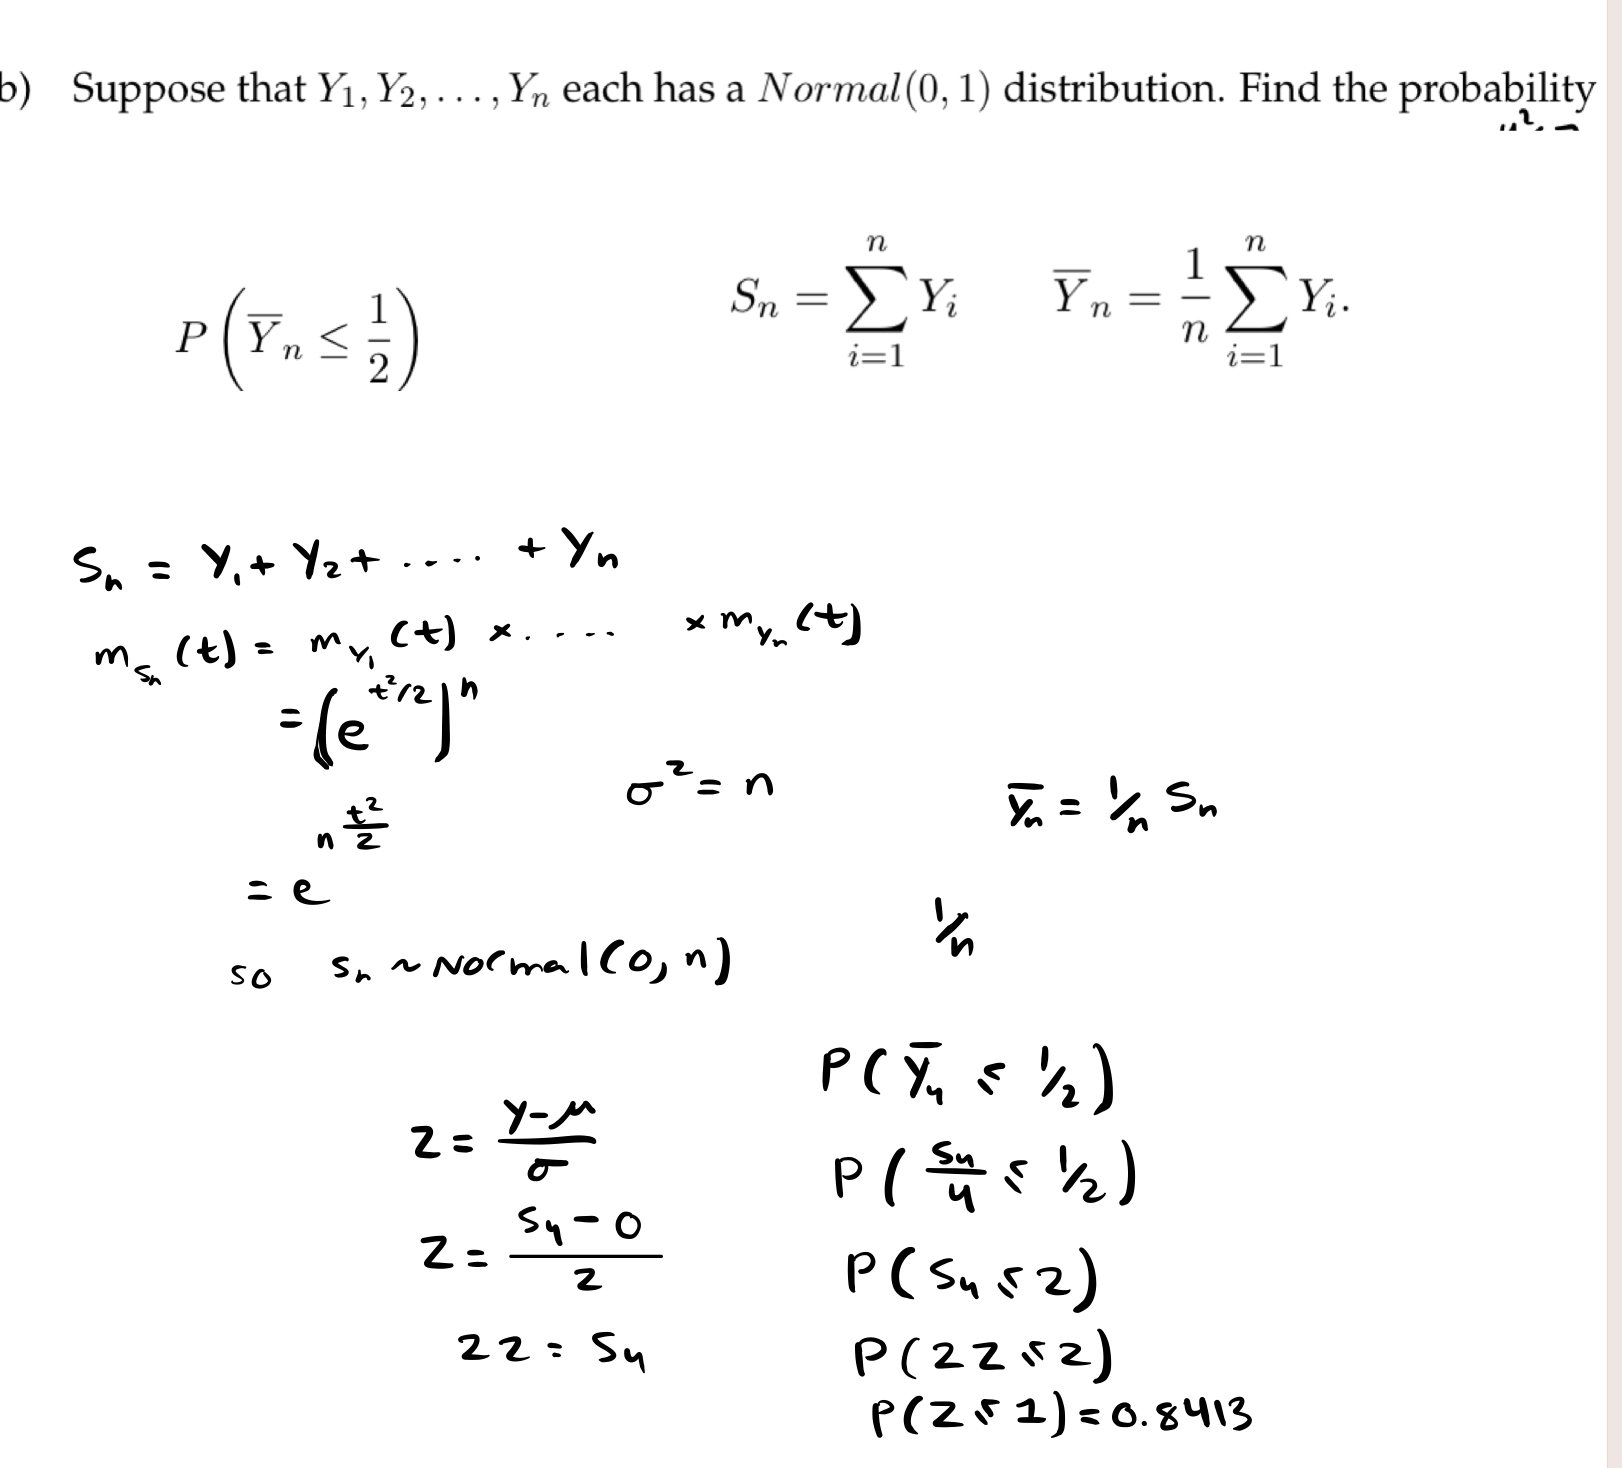 b) Suppose that Y₁, Y₂, . . . , Yₙ each has a Normal(0, 1) distribution. Find the probability
P(Y̅ₙ ≤ 1/2)
Sₙ = ∑ⁿᵢ₌₁ Yᵢ    Y̅ₙ = 1/n ∑ⁿᵢ₌₁ Yᵢ.
Sₙ = Y₁ + Y₂ + .... + Yₙ
m_Sₙ (t) = m_Y₁ (t) × .... × m_Yₙ (t)
= (e^(t²/2))ⁿ
σ² = n
Y̅ₙ = 1/n Sₙ
= e^(n t²/2)
1/n
so Sₙ ~ Normal(0, n)
Z = (Y-μ)/σ
Z = (S₄ - 0)/2
2Z = S₄
P(Y̅₄ ≤ 1/2)
P(S₄/4 ≤ 1/2)
P(S₄ ≤ 2)
P(2Z ≤ 2)
P(Z ≤ 1) = 0.8413